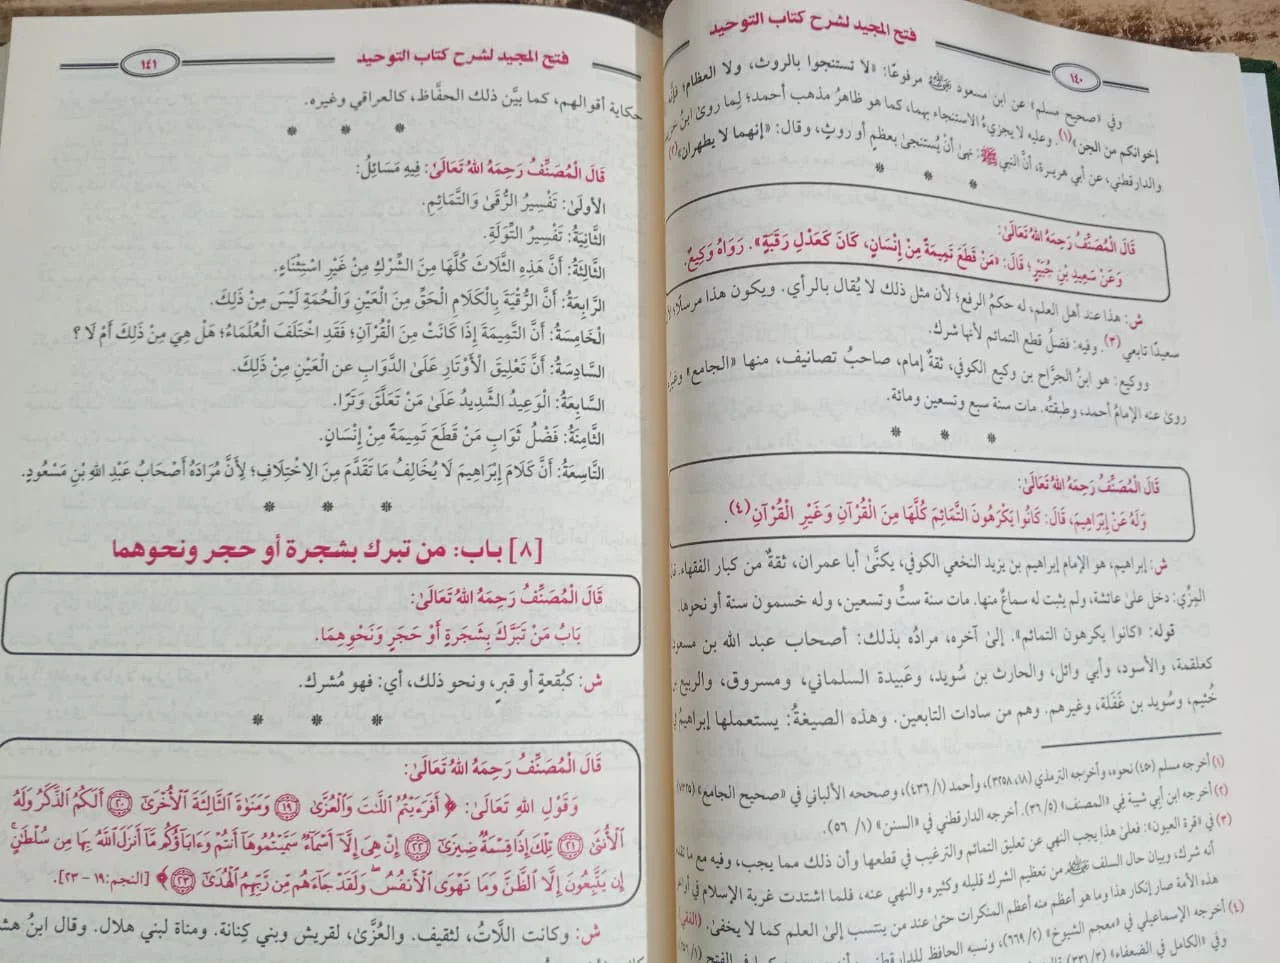 فتح المجيد لشرح كتاب التوحيد
١٤٠
وفي «صحيح مسلم» عن ابن مسعود رضي الله عنه مرفوعًا: «لا تستنجوا بالروث، ولا العظام؛ فإنه
إخوانكم من الجن»(١). وعليه لا يجزيءُ الاستنجاء بهما، كما هو ظاهرُ مذهب أحمد؛ لِما روىٰ ابنُ
والدارقطني، عن أبي هريرة، أنَّ النبي ﷺ: نهىٰ أنْ يُستنجىٰ بعظمٍ أو روثٍ، وقال: «إنهما لا يطهران»(٢)
قَالَ الْمُصَنِّفُ رَحِمَهُ اللهُ تَعَالَىٰ:
وَعَنْ سَعِيدِ بْنِ جُبَيْرٍ؛ قَالَ: «مَنْ قَطَعَ تَمِيمَةً مِنْ إِنْسَانٍ، كَانَ كَعَدْلِ رَقَبَةٍ». رَوَاهُ وَكِيعٌ.
ش: هذا عند أهل العلم، له حكمُ الرفع؛ لأن مثل ذلك لا يُقال بالرأي. ويكون هذا مرسلًا؛
سعيدًا تابعي(٣). وفيه: فضلُ قطع التمائم لأنها شرك.
ووكيع: هو ابنُ الجرَّاح بن وكيع الكوفي، ثقةٌ إمام، صاحبُ تصانيف، منها «الجامع» وغيرُه
روىٰ عنه الإمامُ أحمد، وطبقتُه. مات سنة سبع وتسعين ومائة.
قَالَ الْمُصَنِّفُ رَحِمَهُ اللهُ تَعَالَىٰ:
وَلَهُ عَنْ إِبْرَاهِيمَ، قَالَ: كَانُوا يَكْرَهُونَ التَّمَائِمَ كُلَّهَا مِنَ الْقُرْآنِ وَغَيْرِ الْقُرْآنِ(٤).
ش: إبراهيم، هو الإمام إبراهيم بن يزيد النخعي الكوفي، يكنَّىٰ أبا عمران، ثقةٌ من كبار الفقهاء.
المِزِّي: دخل علىٰ عائشة، ولم يثبت له سماعٌ منها. مات سنة ستٍّ وتسعين، وله خمسون سنة أو نحوها.
قوله: «كانوا يكرهون التمائم». إلىٰ آخره، مرادُه بذلك: أصحاب عبد الله بن مسعو
كعلقمة، والأسود، وأبي وائل، والحارث بن سُويد، وعَبيدة السلماني، ومسروق، والربيع بن
خُثيم، وسُويد بن غَفَلة، وغيرهم. وهم من سادات التابعين. وهذه الصيغةُ: يستعملها إبراهيمُ في
(١) أخرجه مسلم (٤٥٠) نحوه، وأخرجه الترمذي (١٨، ٣٢٥٨)، وأحمد (١/ ٤٣٦)، وصححه الألباني في «صحيح الجامع» (٧٣٢٥)
(٢) أخرجه ابن أبي شيبة في «المصنف» (٥/ ٣٦). أخرجه الدارقطني في «السنن» (١/ ٥٦).
(٣) في «قرة العيون»: فعلىٰ هذا يجب النهي عن تعليق التمائم والترغيب في قطعها وأن ذلك مما يجب، وفيه مع ما تقدم
أنه شرك، وبيان حال السلف من تعظيم الشرك قليله وكثيره والنهي عنه، فلما اشتدت غربة الإسلام في أواخر
هذه الأمة صار إنكار هذا وما هو أعظم منه أعظم المنكرات حتىٰ عند من ينتسب إلىٰ العلم كما لا يخفىٰ. (الفقي)
(٤) أخرجه الإسماعيلي في «معجم الشيوخ» (٢/ ٦٦٩)، ونسبه الحافظ للدارقطني
وفي «الكامل في الضعفاء» (٣/ ٣٣١)
فتح المجيد لشرح كتاب التوحيد
١٤١
حكاية أقوالهم، كما بيَّن ذلك الحفَّاظ، كالعراقي وغيره.
قَالَ الْمُصَنِّفُ رَحِمَهُ اللهُ تَعَالَىٰ: فِيهِ مَسَائِلُ:
الأولَىٰ: تَفْسِيرُ الرُّقَىٰ وَالتَّمَائِمِ.
الثَّانِيَةُ: تَفْسِيرُ التِّوَلَةِ.
الثَّالِثَةُ: أَنَّ هَذِهِ الثَّلَاثَ كُلَّهَا مِنَ الشِّرْكِ مِنْ غَيْرِ اسْتِثْنَاءٍ.
الرَّابِعَةُ: أَنَّ الرُّقْيَةَ بِالْكَلَامِ الْحَقِّ مِنَ الْعَيْنِ وَالْحُمَةِ لَيْسَ مِنْ ذَلِكَ.
الْخَامِسَةُ: أَنَّ التَّمِيمَةَ إِذَا كَانَتْ مِنَ الْقُرْآنِ؛ فَقَدِ اخْتَلَفَ الْعُلَمَاءُ؛ هَلْ هِيَ مِنْ ذَلِكَ أَمْ لَا؟
السَّادِسَةُ: أَنَّ تَعْلِيقَ الْأَوْتَارِ عَلَىٰ الدَّوَابِّ عن الْعَيْنِ مِنْ ذَلِكَ.
السَّابِعَةُ: الْوَعِيدُ الشَّدِيدُ عَلَىٰ مَنْ تَعَلَّقَ وَتَرًا.
الثَّامِنَةُ: فَضْلُ ثَوَابِ مَنْ قَطَعَ تَمِيمَةً مِنْ إِنْسَانٍ.
التَّاسِعَةُ: أَنَّ كَلَامَ إِبْرَاهِيمَ لَا يُخَالِفُ مَا تَقَدَّمَ مِنَ الِاخْتِلَافِ؛ لِأَنَّ مُرَادَهُ أَصْحَابُ عَبْدِ اللهِ بْنِ مَسْعُودٍ.
[٨] باب: من تبرك بشجرة أو حجر ونحوهما
قَالَ الْمُصَنِّفُ رَحِمَهُ اللهُ تَعَالَىٰ:
بَابُ مَنْ تَبَرَّكَ بِشَجَرَةٍ أَوْ حَجَرٍ وَنَحْوِهِمَا.
ش: كبُقعةٍ أو قبرٍ، ونحو ذلك، أي: فهو مُشرك.
قَالَ الْمُصَنِّفُ رَحِمَهُ اللهُ تَعَالَىٰ:
وَقَوْلِ اللهِ تَعَالَىٰ: ﴿أَفَرَءَيْتُمُ اللَّٰتَ وَالْعُزَّىٰ ١٩ وَمَنَوٰةَ الثَّالِثَةَ الْأُخْرَىٰ ٢٠ أَلَكُمُ الذَّكَرُ وَلَهُ
الْأُنثَىٰ ٢١ تِلْكَ إِذًا قِسْمَةٌ ضِيزَىٰ ٢٢ إِنْ هِىَ إِلَّآ أَسْمَآءٌ سَمَّيْتُمُوهَآ أَنتُمْ وَءَابَآؤُكُم مَّآ أَنزَلَ اللَّهُ بِهَا مِن سُلْطَٰنٍ ۚ
إِن يَتَّبِعُونَ إِلَّا الظَّنَّ وَمَا تَهْوَى الْأَنفُسُ ۖ وَلَقَدْ جَآءَهُم مِّن رَّبِّهِمُ الْهُدَىٰٓ ٢٣﴾ [النجم: ١٩ - ٢٣].
ش: وكانت اللَّاتُ، لثقيف. والعُزَّىٰ، لقريش وبني كِنانة. ومناة لبني هلال. وقال ابنُ هشا